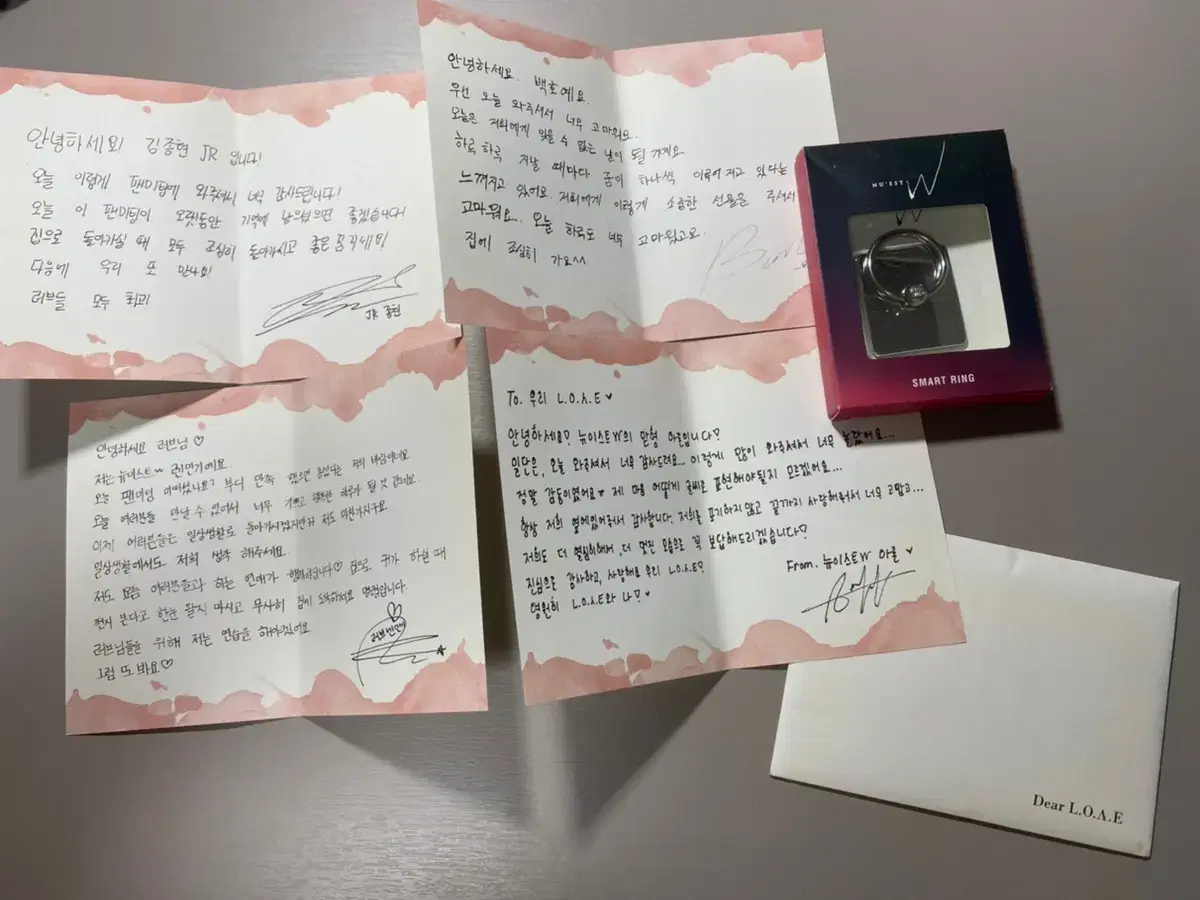 안녕하세요! 김종현 JR 입니다!
오늘 이렇게 팬미팅에 와주셔서 너무 감사드립니다!
오늘 이 팬미팅이 오랫동안 기억에 남으셨으면 좋겠습니다!
집으로 돌아가실 때 모두 조심히 돌아가시고 좋은 꿈꾸세요!
다음에 우리 또 만나요!
러브들 모두 최고!
JR 종현
안녕하세요. 백호예요.
우선 오늘 와주셔서 너무 고마워요.
오늘은 저희에게 잊을 수 없는 날이 될 거예요
하루 하루 지날 때마다 꿈이 하나씩 이루어 지고 있다는
느껴지고 있어요. 저희에게 이렇게 소중한 선물을 주셔서
고마워요. 오늘 하루도 너무 고마웠고요.
집에 조심히 가요^^
NU'EST W
SMART RING
안녕하세요 러브님♡
저는 뉴이스트W 권민기예요.
오늘 팬미팅 어떠셨나요? 부디 만족 했으면 좋겠다는 저의 바람이네요
오늘 여러분들 만날 수 있어서 너무 기쁘고 행복한 하루가 될 것 같네요.
이제 여러분들은 일상생활로 돌아가시겠지만 저도 마찬가지구요
일상생활에서도 저희 생각 해주세요.
저도 요즘 여러분들과 하는 연애가 행복하답니다♡ 집으로 귀가 하실 때
편지 본다고 한눈 팔지 마시고 무사히 집에 도착하세요 명령입니다.
러브님들을 위해 저는 연습을 해야겠어요
그럼 또 봐요♡
To. 우리 L.O.Λ.E ♥
안녕하세요? 뉴이스트W의 맏형 아론입니다?
일단은, 오늘 와주셔서 너무 감사드려요... 이렇게 많이 와주셔서 너무 놀랐어요...
정말 감동이였어요ㅠ 제 마음 어떻게 글씨로 표현해야될지 모르겠어요...
항상 저희 옆에있어줘서 감사합니다. 저희를 포기하지않고 끝까지 사랑해줘서 너무 고맙고...
저희도 더 열심히해서, 더 멋진 모습으로 꼭 보답해드리겠습니다?
진심으로 감사하고, 사랑해요 우리 L.O.Λ.E?
영원히 L.O.Λ.E와 나? ♥
From. 뉴이스트W 아론 ♥
Dear L.O.Λ.E